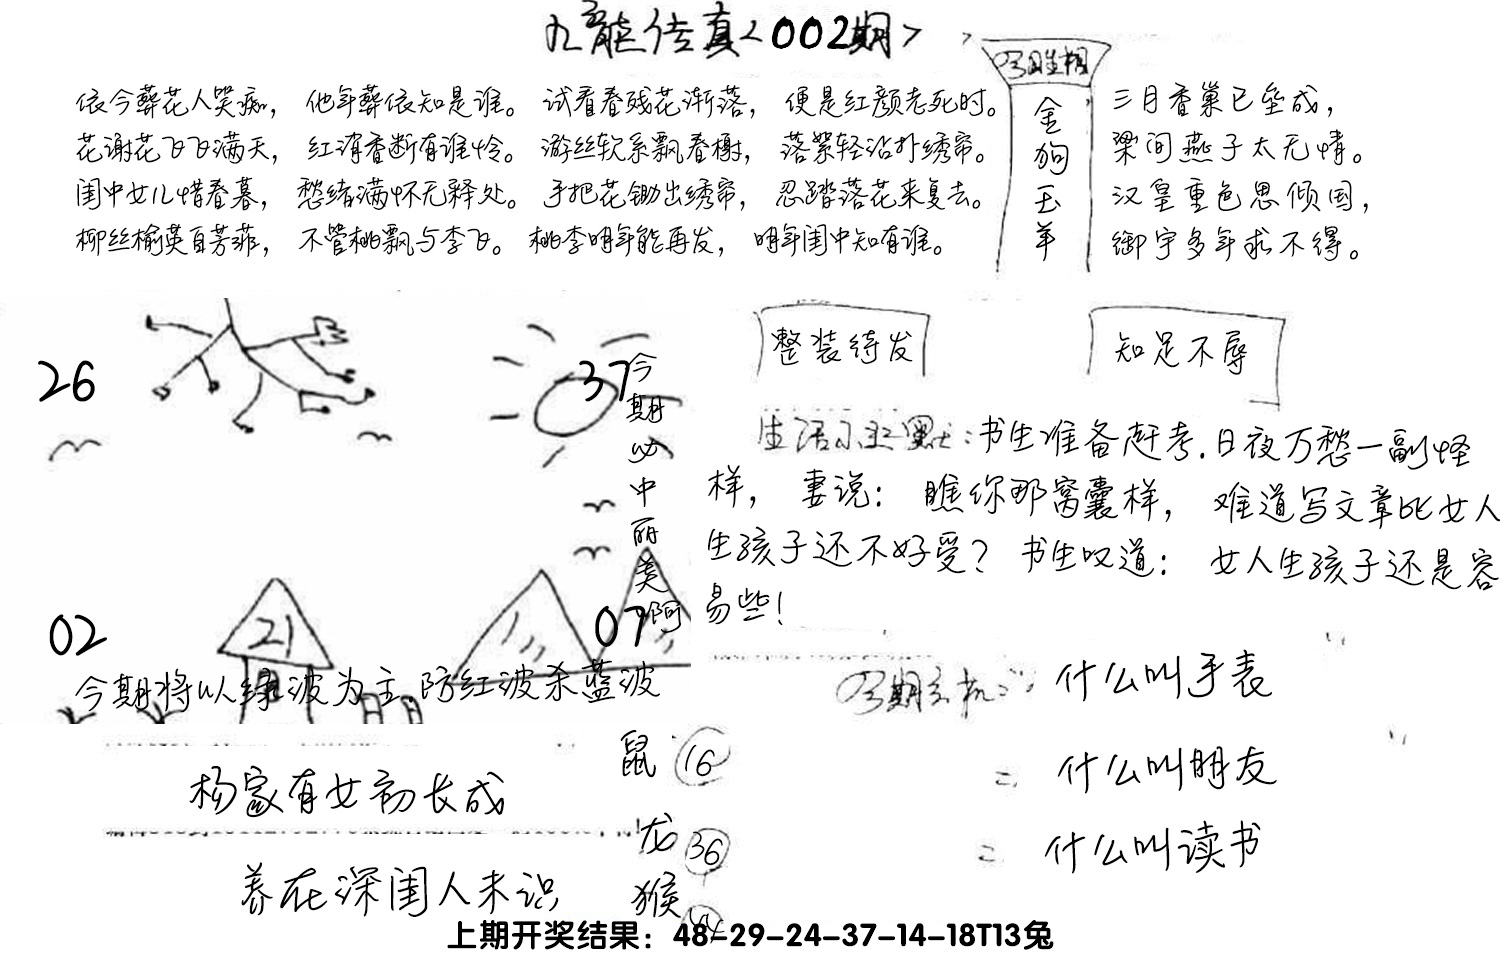 九龙传真<002期>
侬今葬花人笑痴，他年葬侬知是谁。试看春残花渐落，便是红颜老死时。
花谢花飞飞满天，红消香断有谁怜。游丝软系飘春榭，落絮轻沾扑绣帘。
闺中女儿惜春暮，愁绪满怀无释处。手把花锄出绣帘，忍踏落花来复去。
柳丝榆荚自芳菲，不管桃飘与李飞。桃李明年能再发，明年闺中知有谁。
今期生相
金狗玉羊
三月香巢已垒成，
梁间燕子太无情。
汉皇重色思倾国，
御宇多年求不得。
26
37
02
21
07
今期必中丽美啊
今期将以绿波为主防红波杀蓝波
整装待发
知足不辱
生活小幽默：书生准备赶考.日夜万愁一副怪
样，妻说：瞧你那窝囊样，难道写文章比女人
生孩子还不好受？书生叹道：女人生孩子还是容
易些！
今期玄机：什么叫手表
=什么叫朋友
=什么叫读书
杨家有女初长成
养在深闺人未识
鼠 16
龙 36
猴
上期开奖结果：48-29-24-37-14-18T13兔